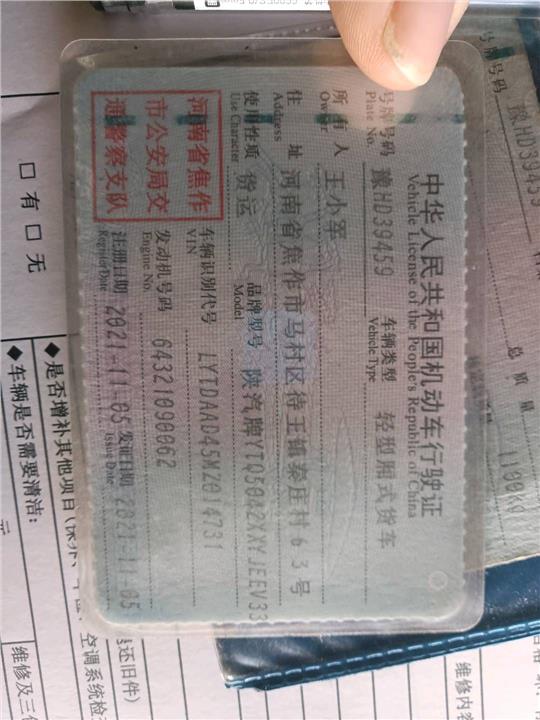 中华人民共和国机动车行驶证
Vehicle License of the People's Republic of China
号牌号码
Plate No.
豫HD39459
车辆类型
Vehicle Type
轻型厢式货车
所有人
Owner
王小军
住址
Address
河南省焦作市马村区待王镇秦庄村63号
使用性质
Use Character
货运
品牌型号
Model
陕汽牌YTQ5042XXYJEEV33
河南省焦作
市公安局交
通警察支队
车辆识别代号
VIN
发动机号码
Engine No.
64321090062
注册日期
Register Date
2021-11-05
发证日期
Issue Date
2021-11-05
号牌号码
豫HD39459
总质量
□ 有 □ 无
◆是否增补其他项目
◆车辆是否需要清洁:
元
空调系统检
还旧件)
维修及三
维修内